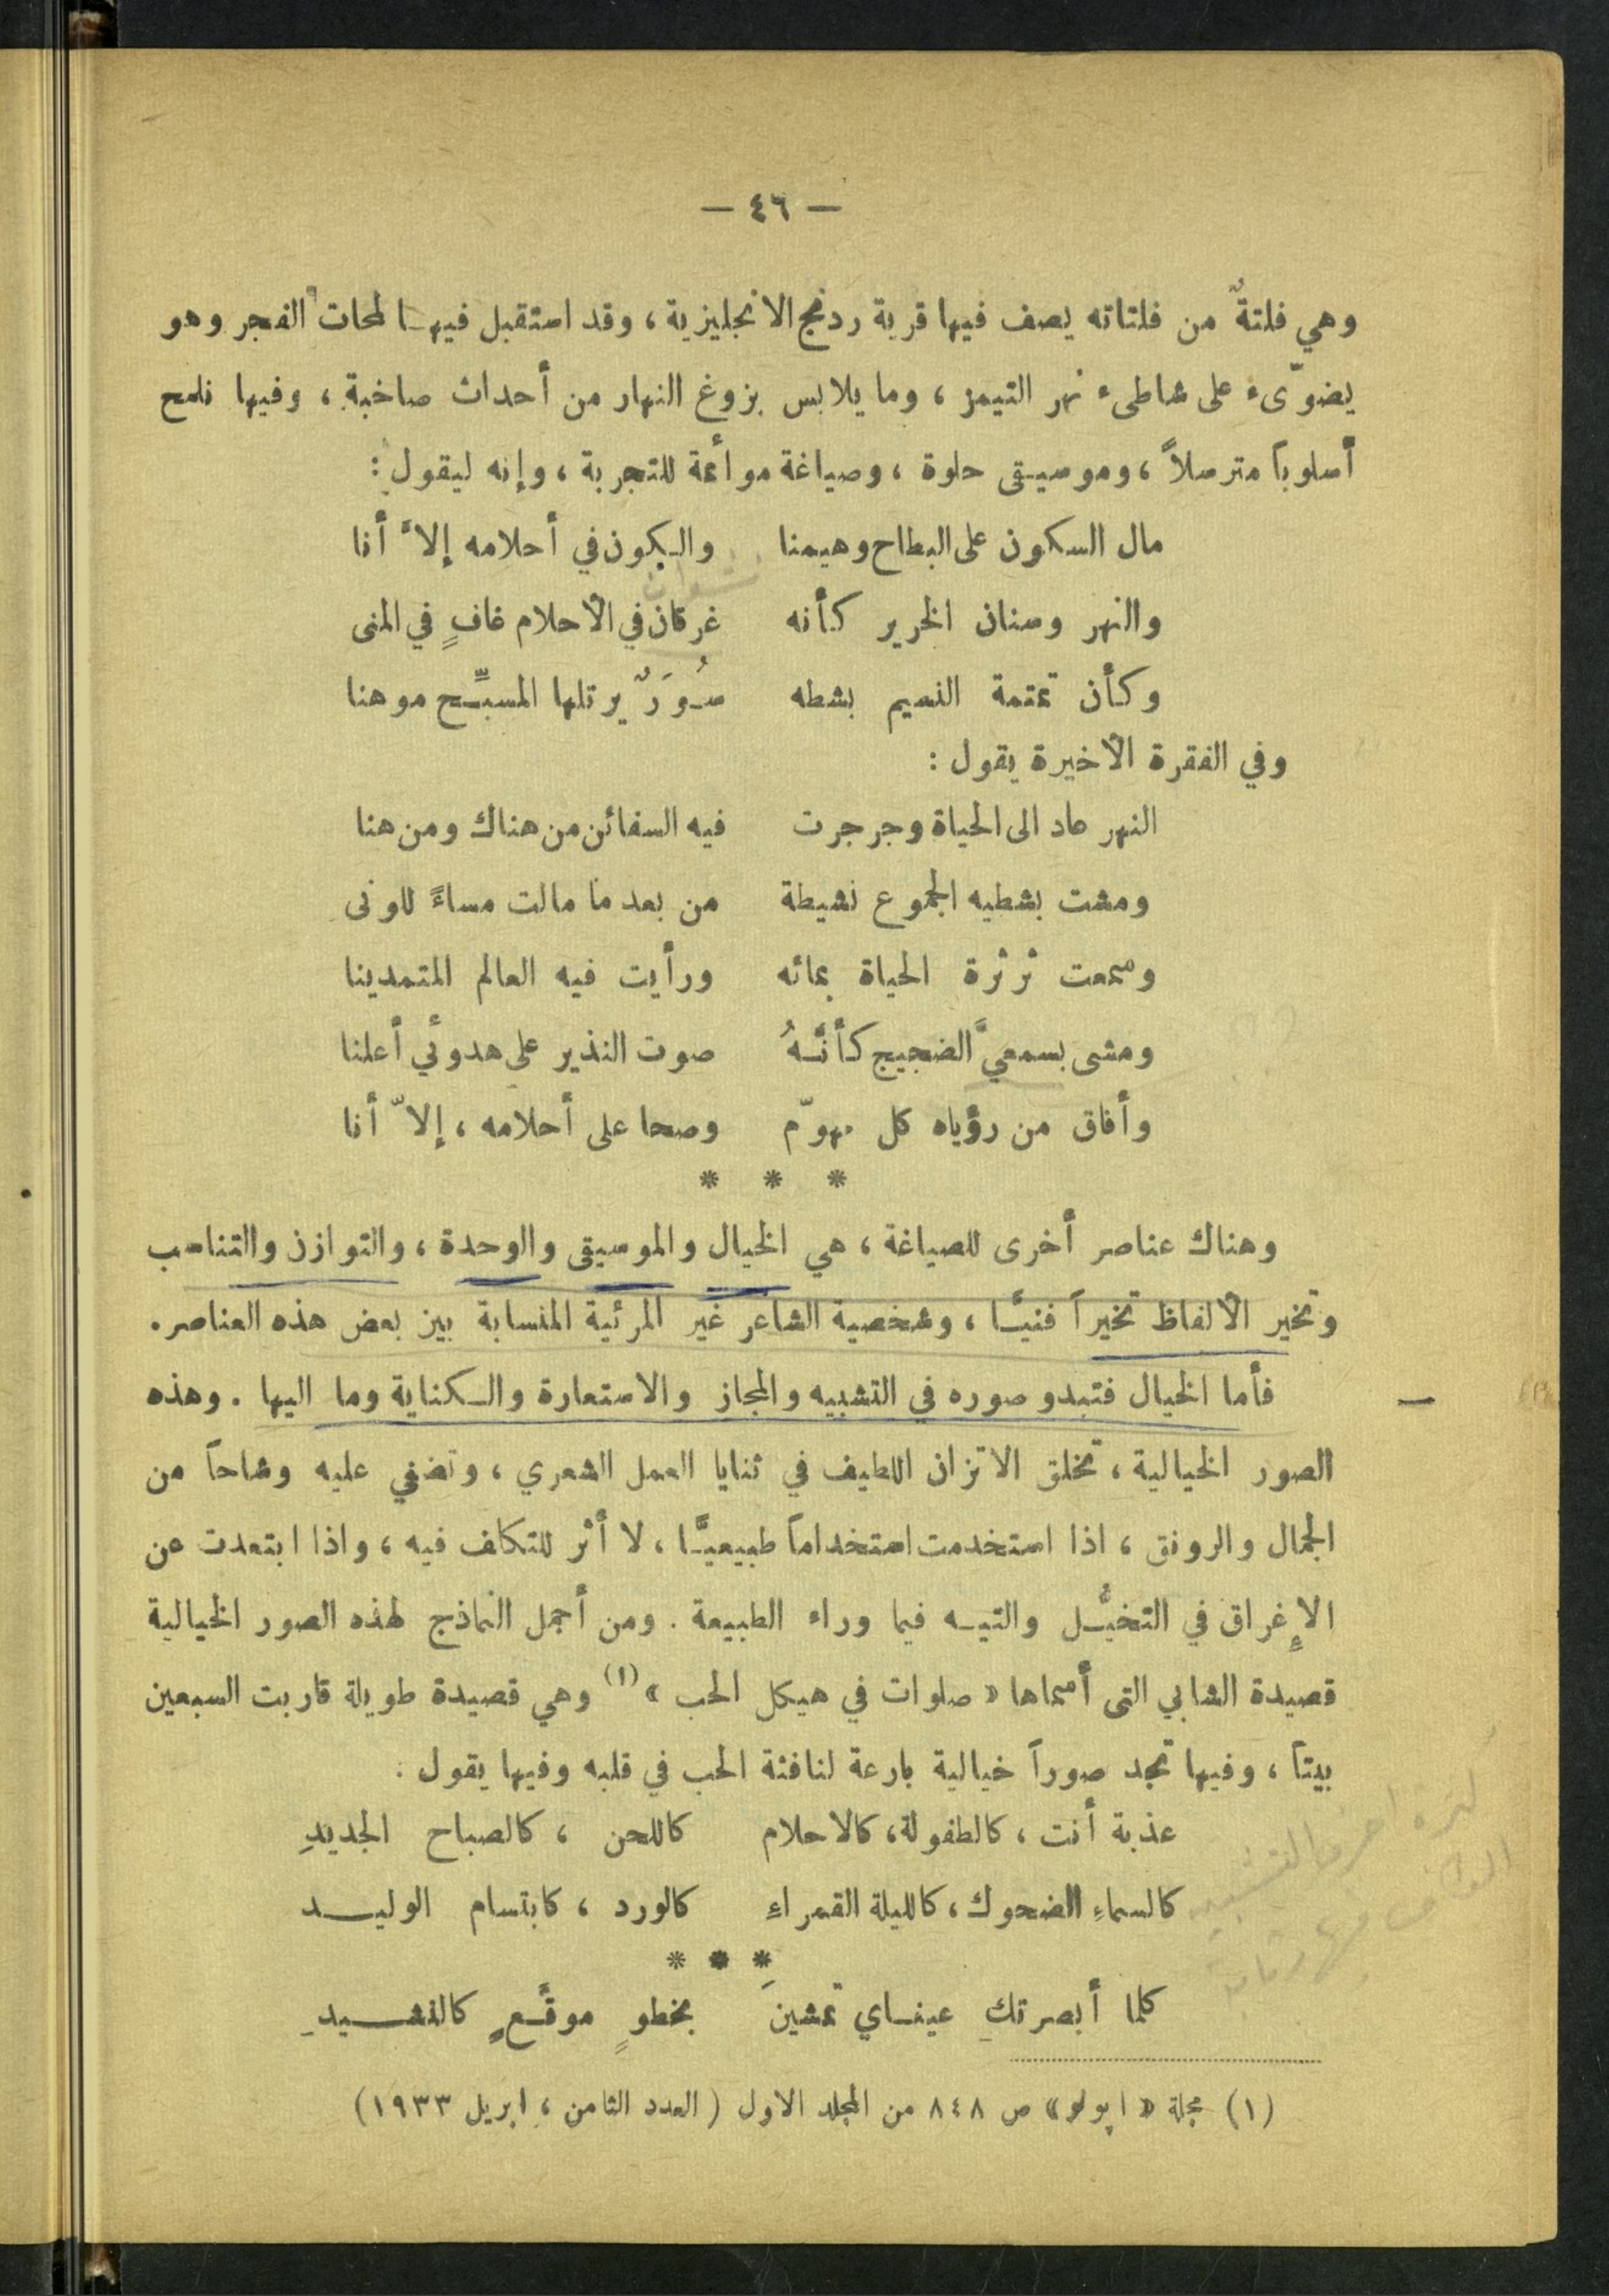 — ٤٦ —
وهي فلتةٌ من فلتاته يصف فيها قرية ردنج الانجليزية ، وقد استقبل فيها لمحات الفجر وهو
يضوّىء على شاطىء نهر التيمز ، وما يلابس بزوغ النهار من أحداث صاخبة ، وفيها نلمح
أسلوباً مترسلاً ، وموسيقى حلوة ، وصياغة موائمة للتجربة ، وإنه ليقول :
مال السكون على البطاح وهيمنا والكون في أحلامه إلاَّ أنا
والنهر وسنان الخرير كأنه غرقان في الأحلام غافٍ في المنى
وكأن تمتمة النسيم بشطه سُوَرٌ يرتلها المسبِّح موهنا
وفي الفقرة الأخيرة يقول :
النهر عاد الى الحياة وجرجرت فيه السفائن من هناك ومن هنا
ومشت بشطيه الجموع نشيطة من بعد ما مالت مساءً للونى
وسمعت ثرثرة الحياة بمائه ورأيت فيه العالم المتمدينا
ومشى بسمعيَّ الضجيج كأنَّهُ صوت النذير على هدوئي أعلنا
وأفاق من رؤياه كل مهوّم وصحا على أحلامه ، إلاّ أنا
* * *
وهناك عناصر أخرى للصياغة ، هي الخيال والموسيقى والوحدة ، والتوازن والتناسب
وتخير الألفاظ تخيراً فنيًّا ، وشخصية الشاعر غير المرئية المنسابة بين بعض هذه العناصر .
فأما الخيال فتبدو صوره في التشبيه والمجاز والاستعارة والكناية وما اليها . وهذه
الصور الخيالية ، تخلق الاتزان اللطيف في ثنايا العمل الشعري ، وتضفي عليه وشاحاً من
الجمال والرونق ، اذا استخدمت استخداماً طبيعيًّا ، لا أثر للتكلف فيه ، واذا ابتعدت عن
الإغراق في التخيُّل والتيه فيما وراء الطبيعة . ومن أجمل النماذج لهذه الصور الخيالية
قصيدة الشابي التى أسماها « صلوات في هيكل الحب » (١) وهي قصيدة طويلة قاربت السبعين
بيتاً ، وفيها تجد صوراً خيالية بارعة لنافثة الحب في قلبه وفيها يقول :
عذبة أنت ، كالطفولة ، كالاحلام كاللحن ، كالصباح الجديدِ
كالسماءِ الضحوك ، كالليلة القمراءِ كالورد ، كابتسام الوليد
* * *
كلما أبصرتكِ عيناي تمشينَ بخطوٍ موقَّعٍ كالنشيدِ
(١) مجلة « اپولو » ص ٨٤٨ من المجلد الاول ( العدد الثامن ، ابريل ١٩٣٣ )